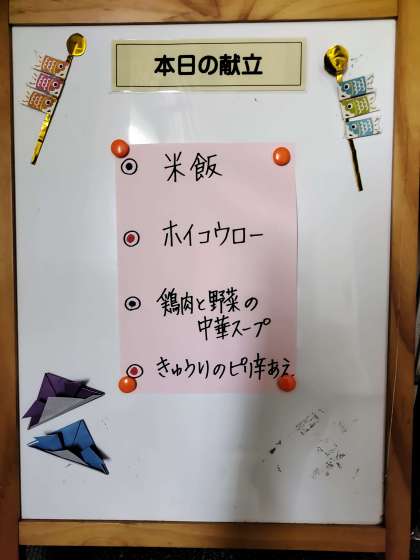 本日の献立
米飯
ホイコウロー
鶏肉と野菜の
中華スープ
きゅうりのピリ辛あえ